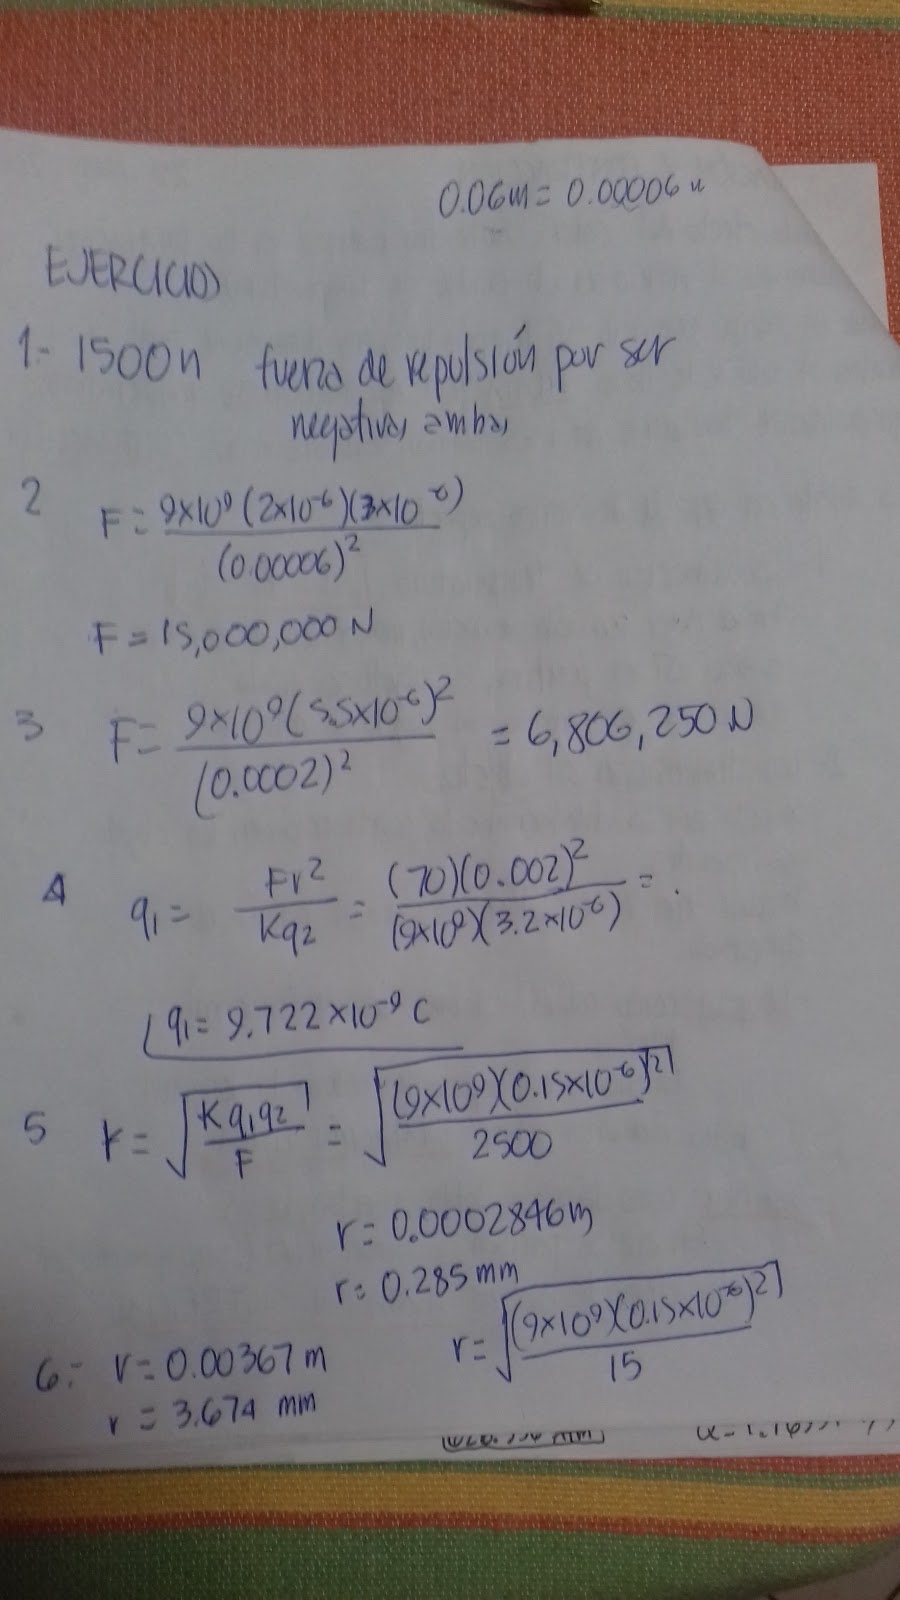 0.06m = 0.00006 
EJERCICIOS
1.- 1500n fuerza de repulsión por ser
negativas ambas
2 F = 9x10⁹ (2x10⁻⁶)(3x10⁻⁶)
(0.00006)²
F = 15,000,000 N
3 F = 9x10⁹ (5.5x10⁻⁶)² = 6,806,250 N
(0.0002)²
4 q₁ = Fr² = (70)(0.002)² =
Kq₂ (9x10⁹)(3.2x10⁻⁶)
q₁ = 9.722x10⁻⁹ C
5 r = √ Kq₁q₂ = √ (9x10⁹)(0.15x10⁻⁶)²
F 2500
r = 0.0002846m
r = 0.285 mm
6.- r = 0.00367 m r = √ (9x10⁹)(0.15x10⁻⁶)²
15
r = 3.674 mm